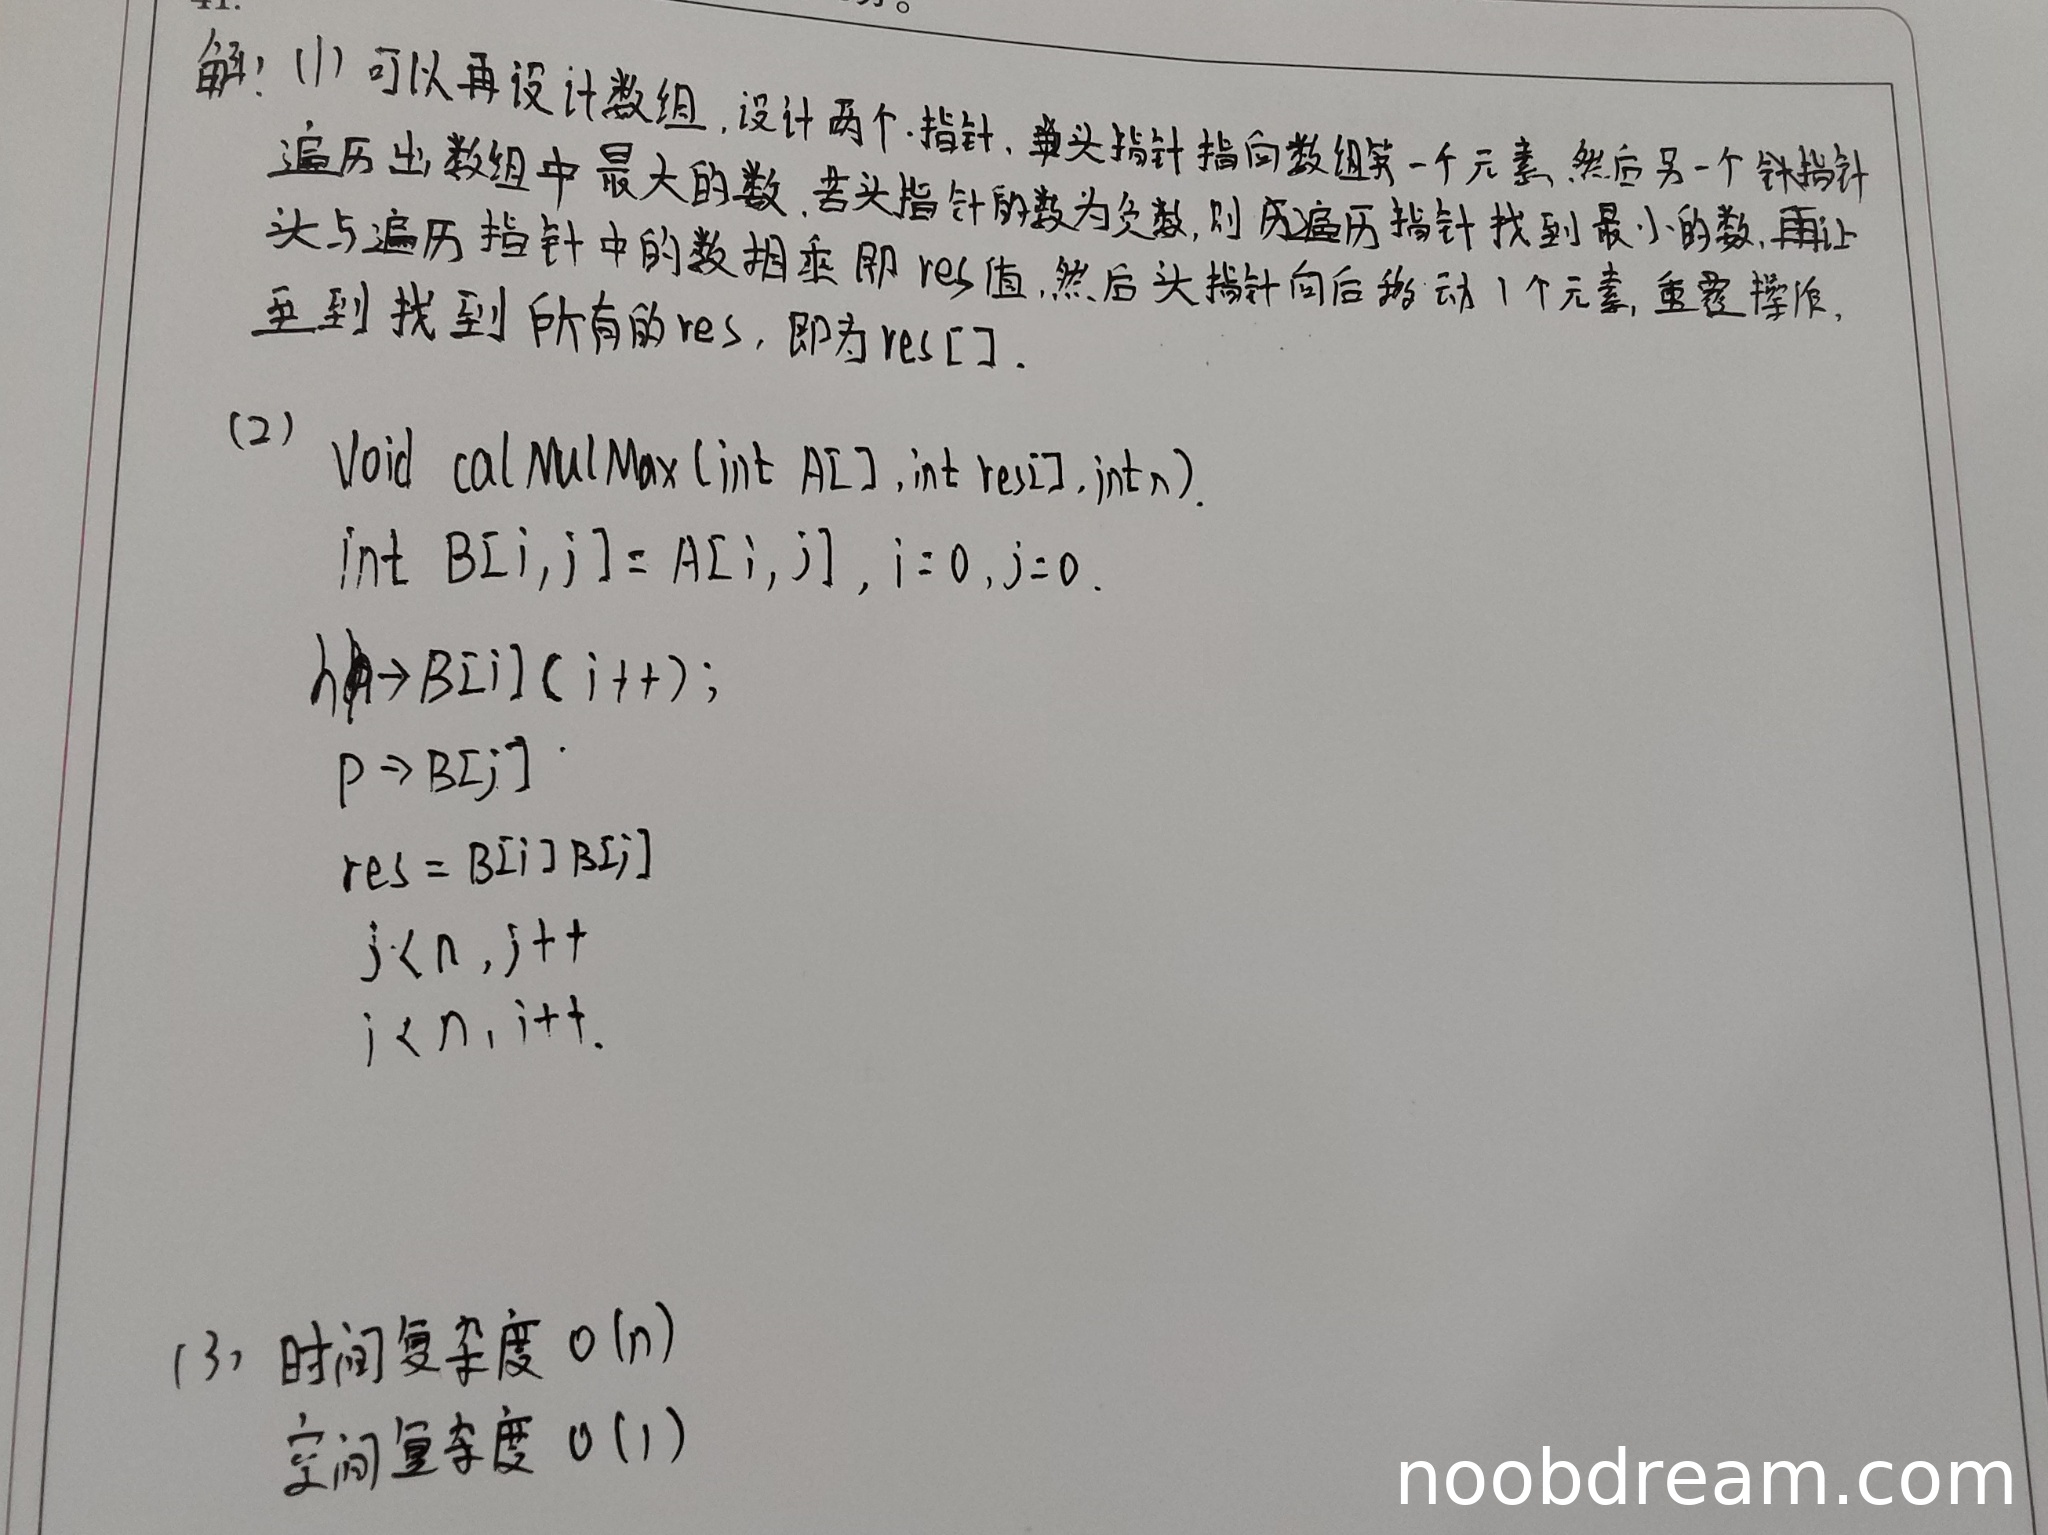 41.
分。
解: (1) 可以再设计数组,设计两个指针,头指针指向数组第一个元素,然后另一个指针
遍历出数组中最大的数,若头指针的数为负数,则遍历指针找到最小的数,再让
头与遍历指针中的数相乘即res值,然后头指针向后移动1个元素,重复操作,
至到找到所有的res,即为res[].
(2)
Void calMulMax(int A[],int res[],int n).
int B[i,j]=A[i,j], i=0,j=0.
h→B[i](i++);
p→B[j]
res=B[i]B[j]
j<n,j++
i<n,i++.
(3) 时间复杂度 O(n)
空间复杂度 O(1)
noobdream.com